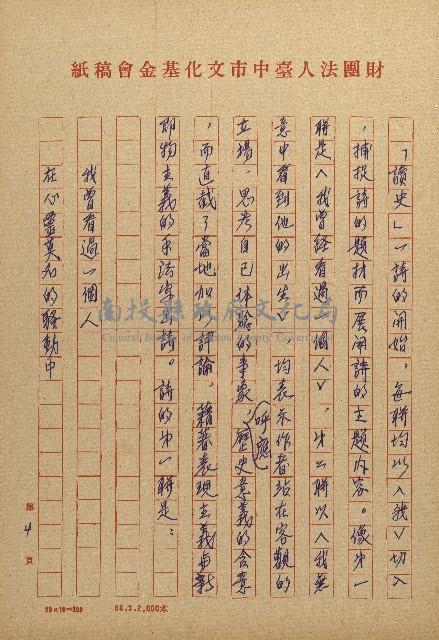 財團法人臺中市文化基金會稿紙
「讀史」一詩的開始，每聯均以〈我〉切入
，捕捉詩的題材而展開詩的主題內容。像第一
聯是〈我曾經看過一個人〉，第二聯以〈我無
意中看到他的出生〉均表示作者站在客觀的
立場，思考自己体驗的事象，呼應歷史意義的含意
，而直截了當地加以評論，藉著表現主義與新
即物主義的手法寫出詩。詩的第一聯是：
我曾看過一個人
在心靈莫名的騷動中
第4頁
20×10=200
88.3.2,000本
南投縣政府文化局
Cultural Bureau of Nantou County Government